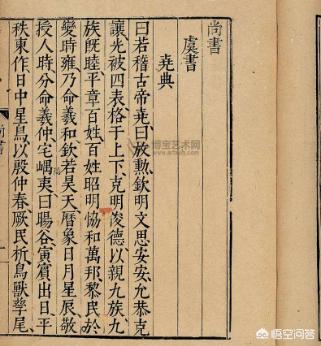 尚書
虞書
堯典
曰若稽古帝堯曰放勲欽明文思安安允恭克
讓光被四表格于上下克明俊德以親九族九
族既睦平章百姓百姓昭明協和萬邦黎民於
變時雍乃命羲和欽若昊天曆象日月星辰敬
授人時分命羲仲宅嵎夷曰暘谷寅賓出日平
秩東作日中星鳥以殷仲春厥民析鳥獸孳尾
博宝艺术网
悟空问答